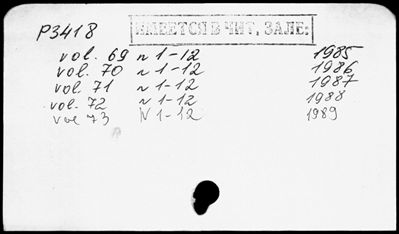 P3418
ИМЕЕТСЯ В ЧИТ. ЗАЛЕ:
vol. 69 n 1-12 1985
vol. 70 n 1-12 1986
vol. 71 n 1-12 1987
vol. 72 n 1-12 1988
vol 73 N 1-12 1989